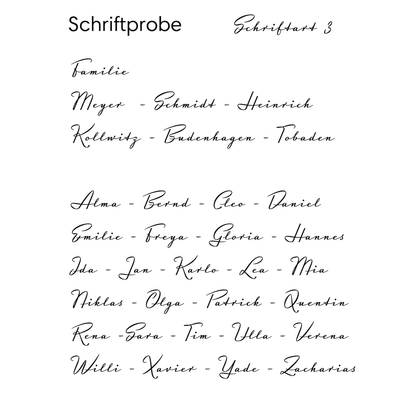 Schriftprobe Schriftart 3
Familie
Meyer - Schmidt - Heinrich
Kollwitz - Budenhagen - Tobaden
Alma - Bernd - Cleo - Daniel
Emilie - Freya - Gloria - Hannes
Ida - Jan - Karlo - Lea - Mia
Niklas - Olga - Patrick - Quentin
Rena -Sara - Tim - Ulla - Verena
Willi - Xavier - Yade - Zacharias